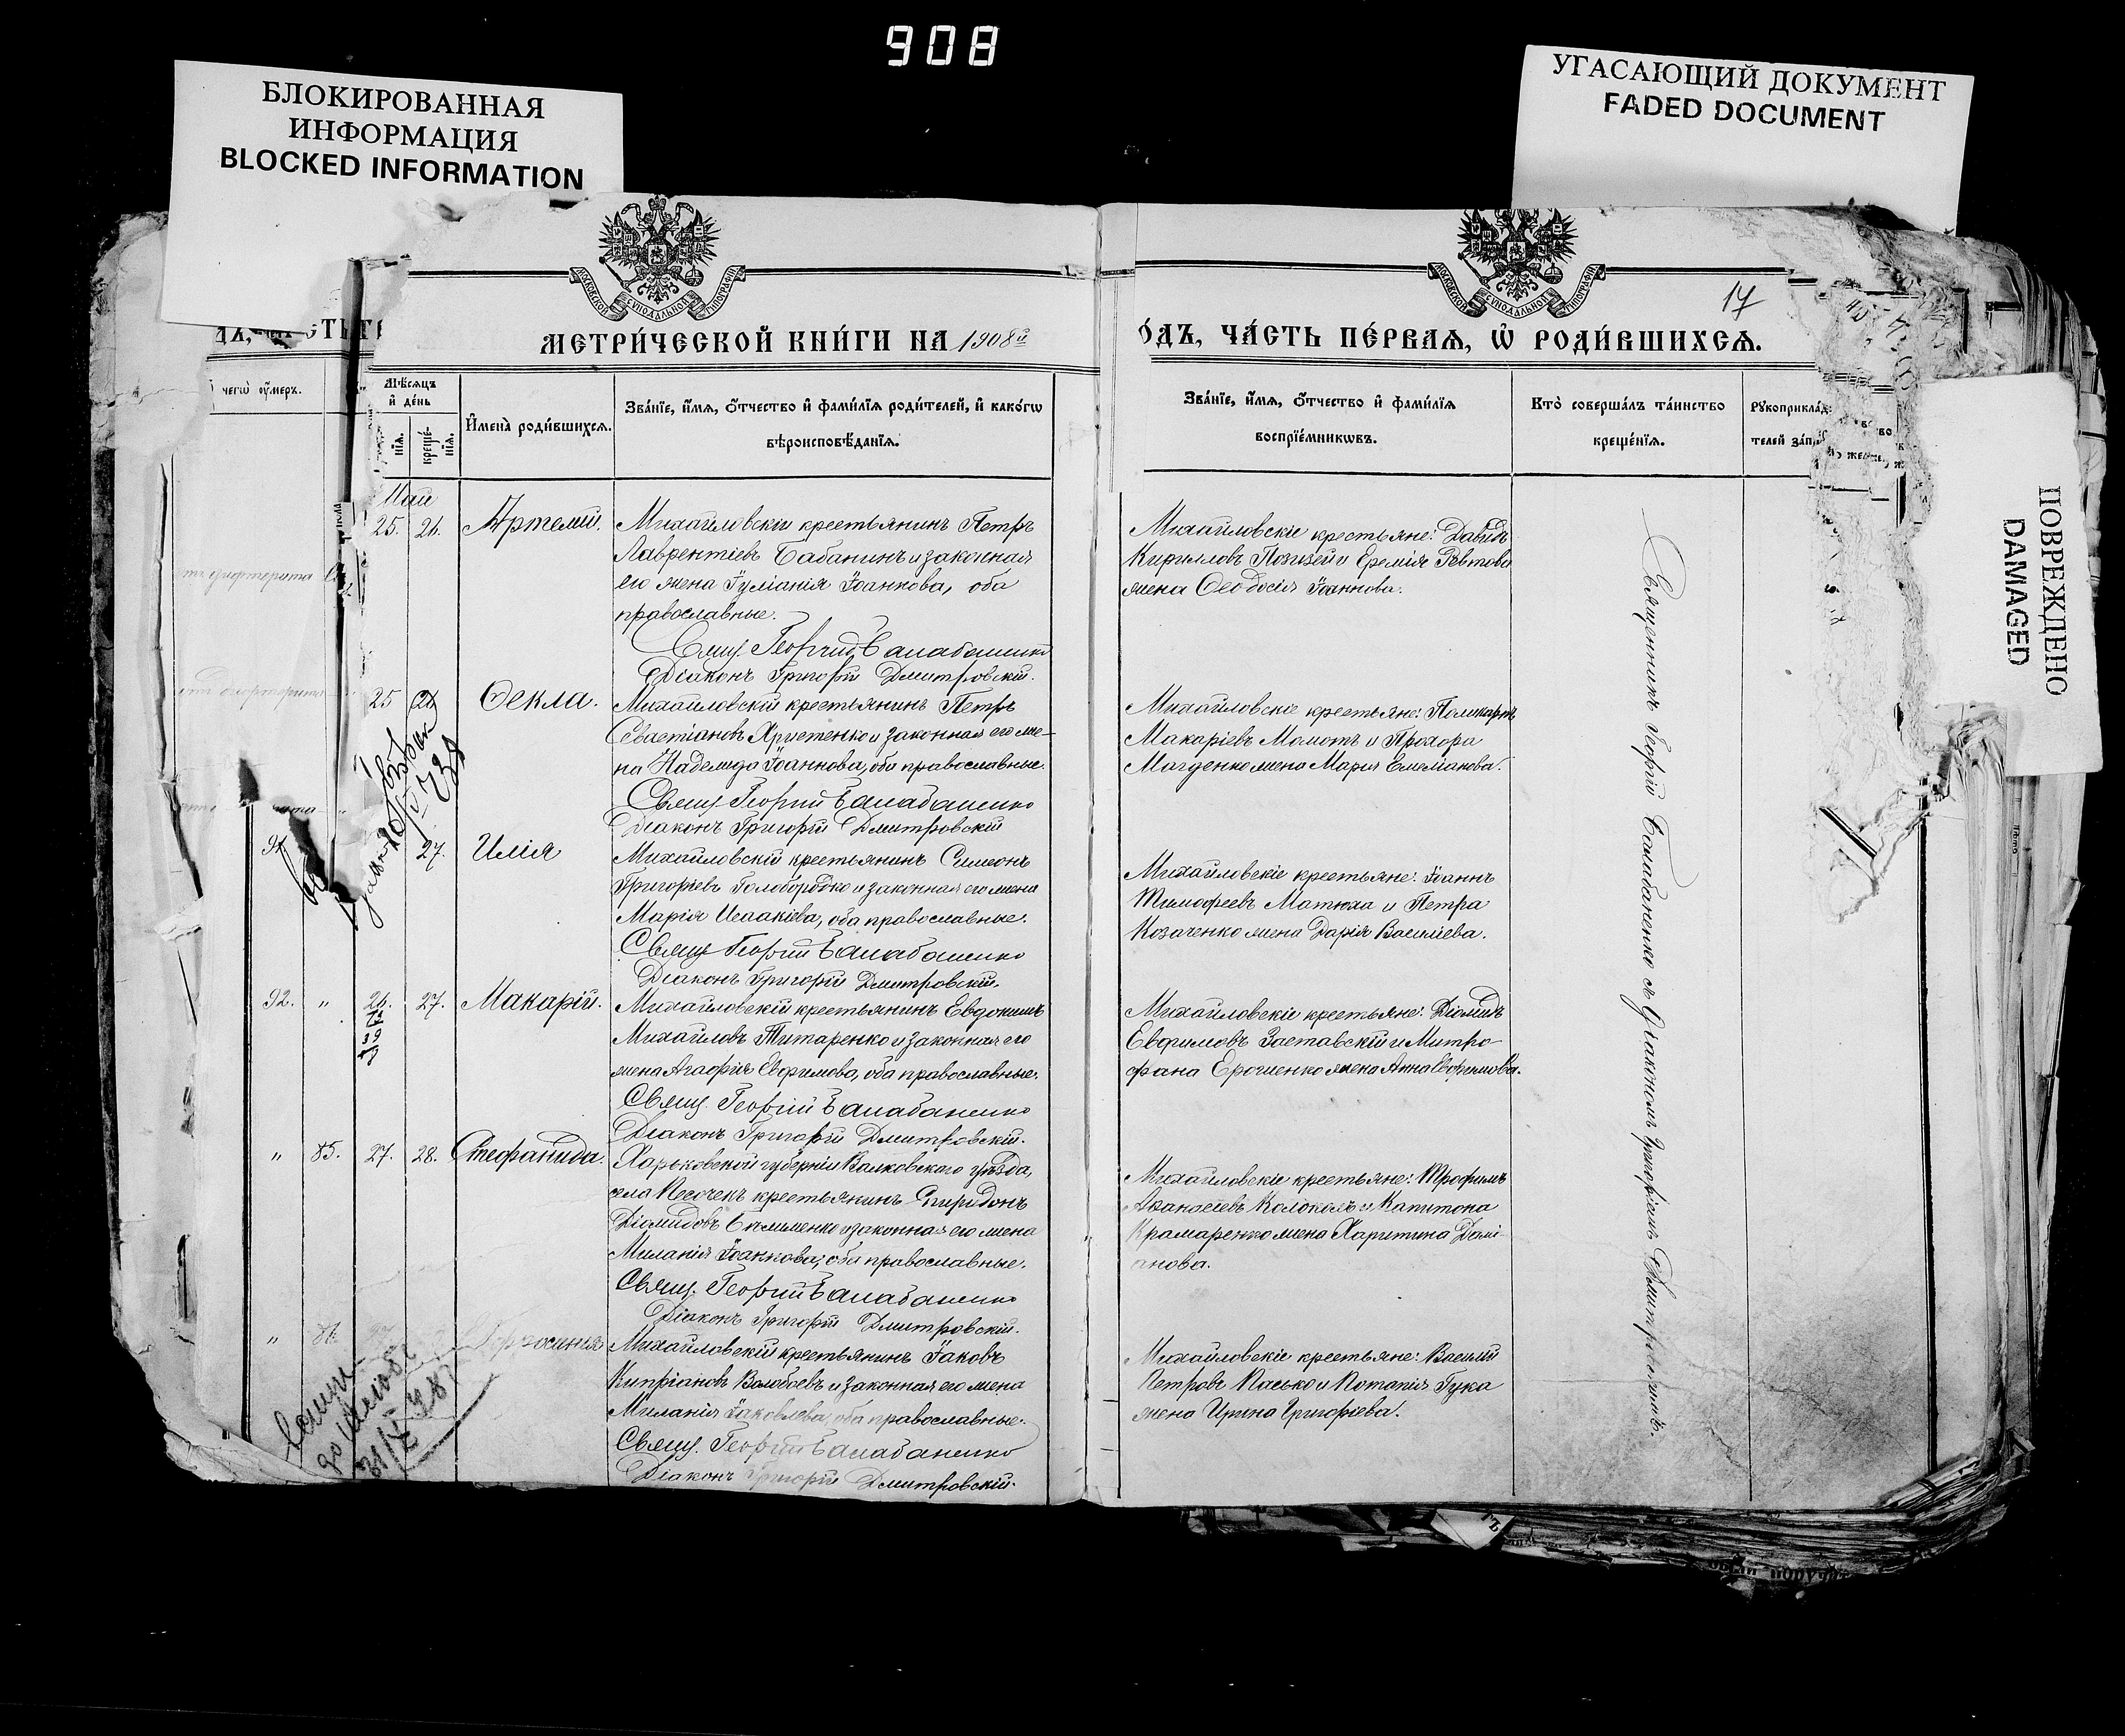 908
БЛОКИРОВАННАЯ
ИНФОРМАЦИЯ
BLOCKED INFORMATION
УГАСАЮЩИЙ ДОКУМЕНТ
FADED DOCUMENT
ПОВРЕЖДЕНО
DAMAGED
МОСКОВСКОЙ СѴНОДАЛЬНОЙ ТИПОГРАФІИ
МОСКОВСКОЙ СѴНОДАЛЬНОЙ ТИПОГРАФІИ
17
МЕТРИ́ЧЕСКОЙ КНИ́ГИ НА 1908й
ОДЪ, ЧА́СТЬ ПЕ́РВАѦ, Ѡ РОДИ́ВШИХСѦ.
чегѡ ꙋмеръ.
Мѣсѧцъ
и де́нь
креще́нїѧ.
Имена̀ роди́вшихсѧ.
Зва́нїе, и́мѧ, о́тчество и фами́лїѧ роди́телей, и како́гѡ
вѣроисповѣ́данїѧ.
Зва́нїе, и́мѧ, о́тчество и фами́лїѧ
воспрїе́мникѡвъ.
Кто̀ соверша́лъ та́инство
креще́нїѧ.
Рꙋкоприкла́д
телей за́п
Май
25. 26. Артемій.
Михайловскій крестьянинъ Петръ
Лаврентіевъ Бабанинъ и законная
его жена Іуліанія Іоаннова, оба
православные.
Свящ. Георгій Балабаненко
Діаконъ Григорій Дмитровскій.
Михайловскіе крестьяне: Давидъ
Кирилловъ и Еремія
жена Ѳеодосія Іоаннова.
25 Ѳекла.
Михайловскій крестьянинъ Петръ
Севастіановъ Христенко и законная его же-
на Надежда Іоаннова, оба православные.
Свящ. Георгій Балабаненко
Діаконъ Григорій Дмитровскій
Михайловскіе крестьяне: Поликарпъ
Макаріевъ Момотъ и Прохора
Магденко жена Марія Емеліанова.
91 27. Илія
Михайловскій крестьянинъ Симеонъ
Григоріевъ Голобородко и законная его жена
Марія Исаакіева, оба православные.
Свящ Георгій Балабаненко
Діаконъ Григорій Дмитровскій.
Михайловскіе крестьяне: Іоаннъ
Тимофеевъ Матюха и Петра
Козаченко жена Дарія Василіева.
92. " 26. 27. Макарій.
Михайловскій крестьянинъ Евдокимъ
Михайловъ Титаренко и законная его
жена Агафія Евфимова, оба православные.
Свящ. Георгій Балабаненко
Діаконъ Григорій Дмитровскій.
Михайловскіе крестьяне: Діомидъ
Евфимовъ Заставскій и Митро-
фана Ерошенко жена Анна Евфимова.
" 85. 27. 28. Стефанида.
Харьковской губерніи Валковскаго уѣзда,
села Песочекъ крестьянинъ Спиридонъ
Діомидовъ и законная его жена
Миланія Іоаннова, оба православные.
Свящ. Георгій Балабаненко
Діаконъ Григорій Дмитровскій.
Михайловскіе крестьяне: Трофимъ
Аѳанасіевъ Колоколъ и Капитона
Крамаренко жена Харитина Домі-
анова.
"
Михайловскій крестьянинъ Іаковъ
Кипріановъ Волобоевъ и законная его жена
Миланія Іаковлева, оба православные.
Свящ. Георгій Балабаненко
Діаконъ Григорій Дмитровскій.
Михайловскіе крестьяне: Василій
Петровъ Пасько и Романія Гука
жена Ирина Григоріева.
Священникъ Георгій Балабаненко съ Діакономъ Григоріемъ Дмитровскимъ.